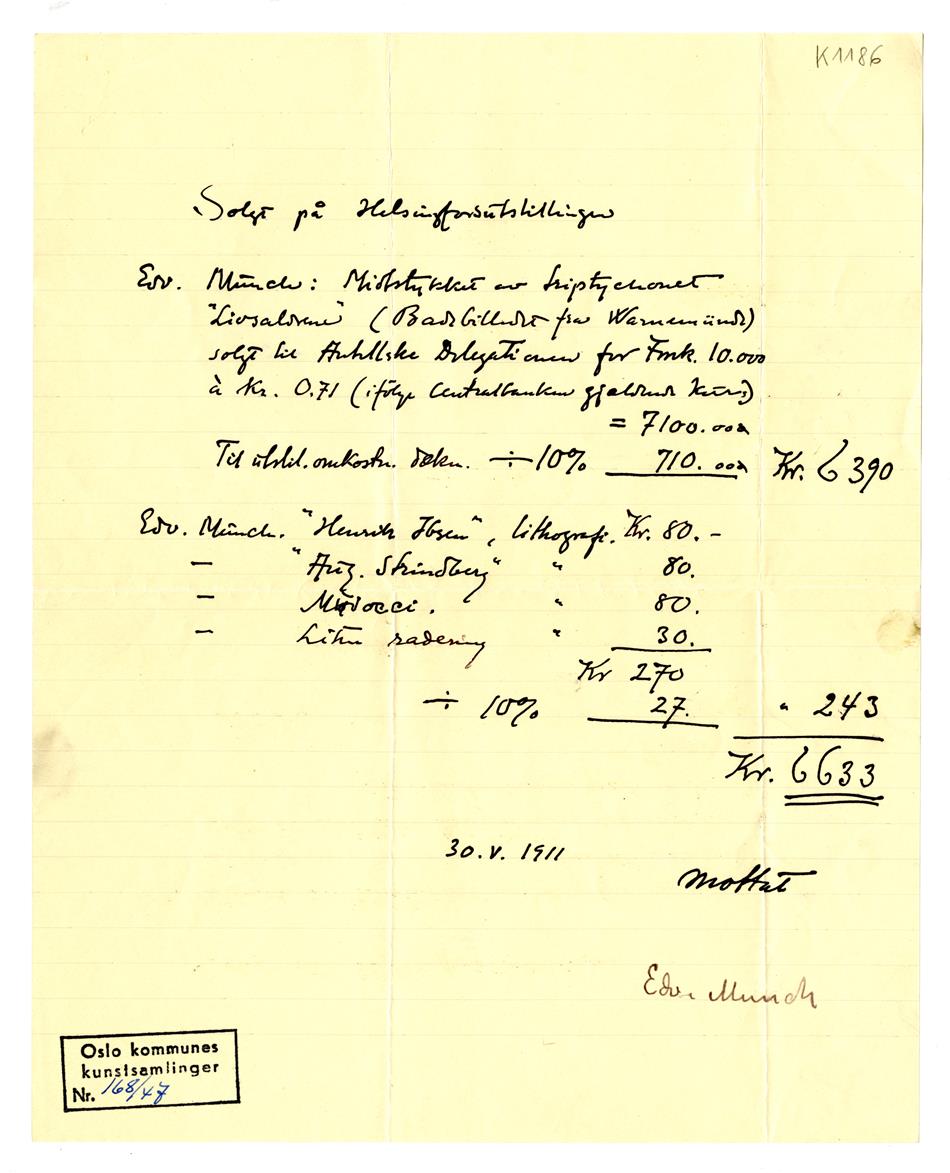 K1186
Solgt på Helsingforsutstillingen
Edv. Münch: Midtstykket av triptychonet
"Livsaldrene" (Badebilledet fra Warnemünde)
solgt til Antellske Delegationen for Fmk. 10.000
à Kr. 0.71 (ifölge Centralbanken gjeldende Kurs)
= 7100.000
Til utstil. omkostn. dekn. ÷ 10% 710.000 Kr. 6390
Edv. Münch. "Henrik Ibsen", lithografi. Kr. 80.-
— "Aug. Strindberg" " 80.
— Mudocci. " 80.
— Liten radering " 30.
Kr 270
÷ 10% 27. " 243
Kr. 6633
30.V. 1911
Mottat
Edv. Munch
Oslo kommunes
kunstsamlinger
Nr. 168/47